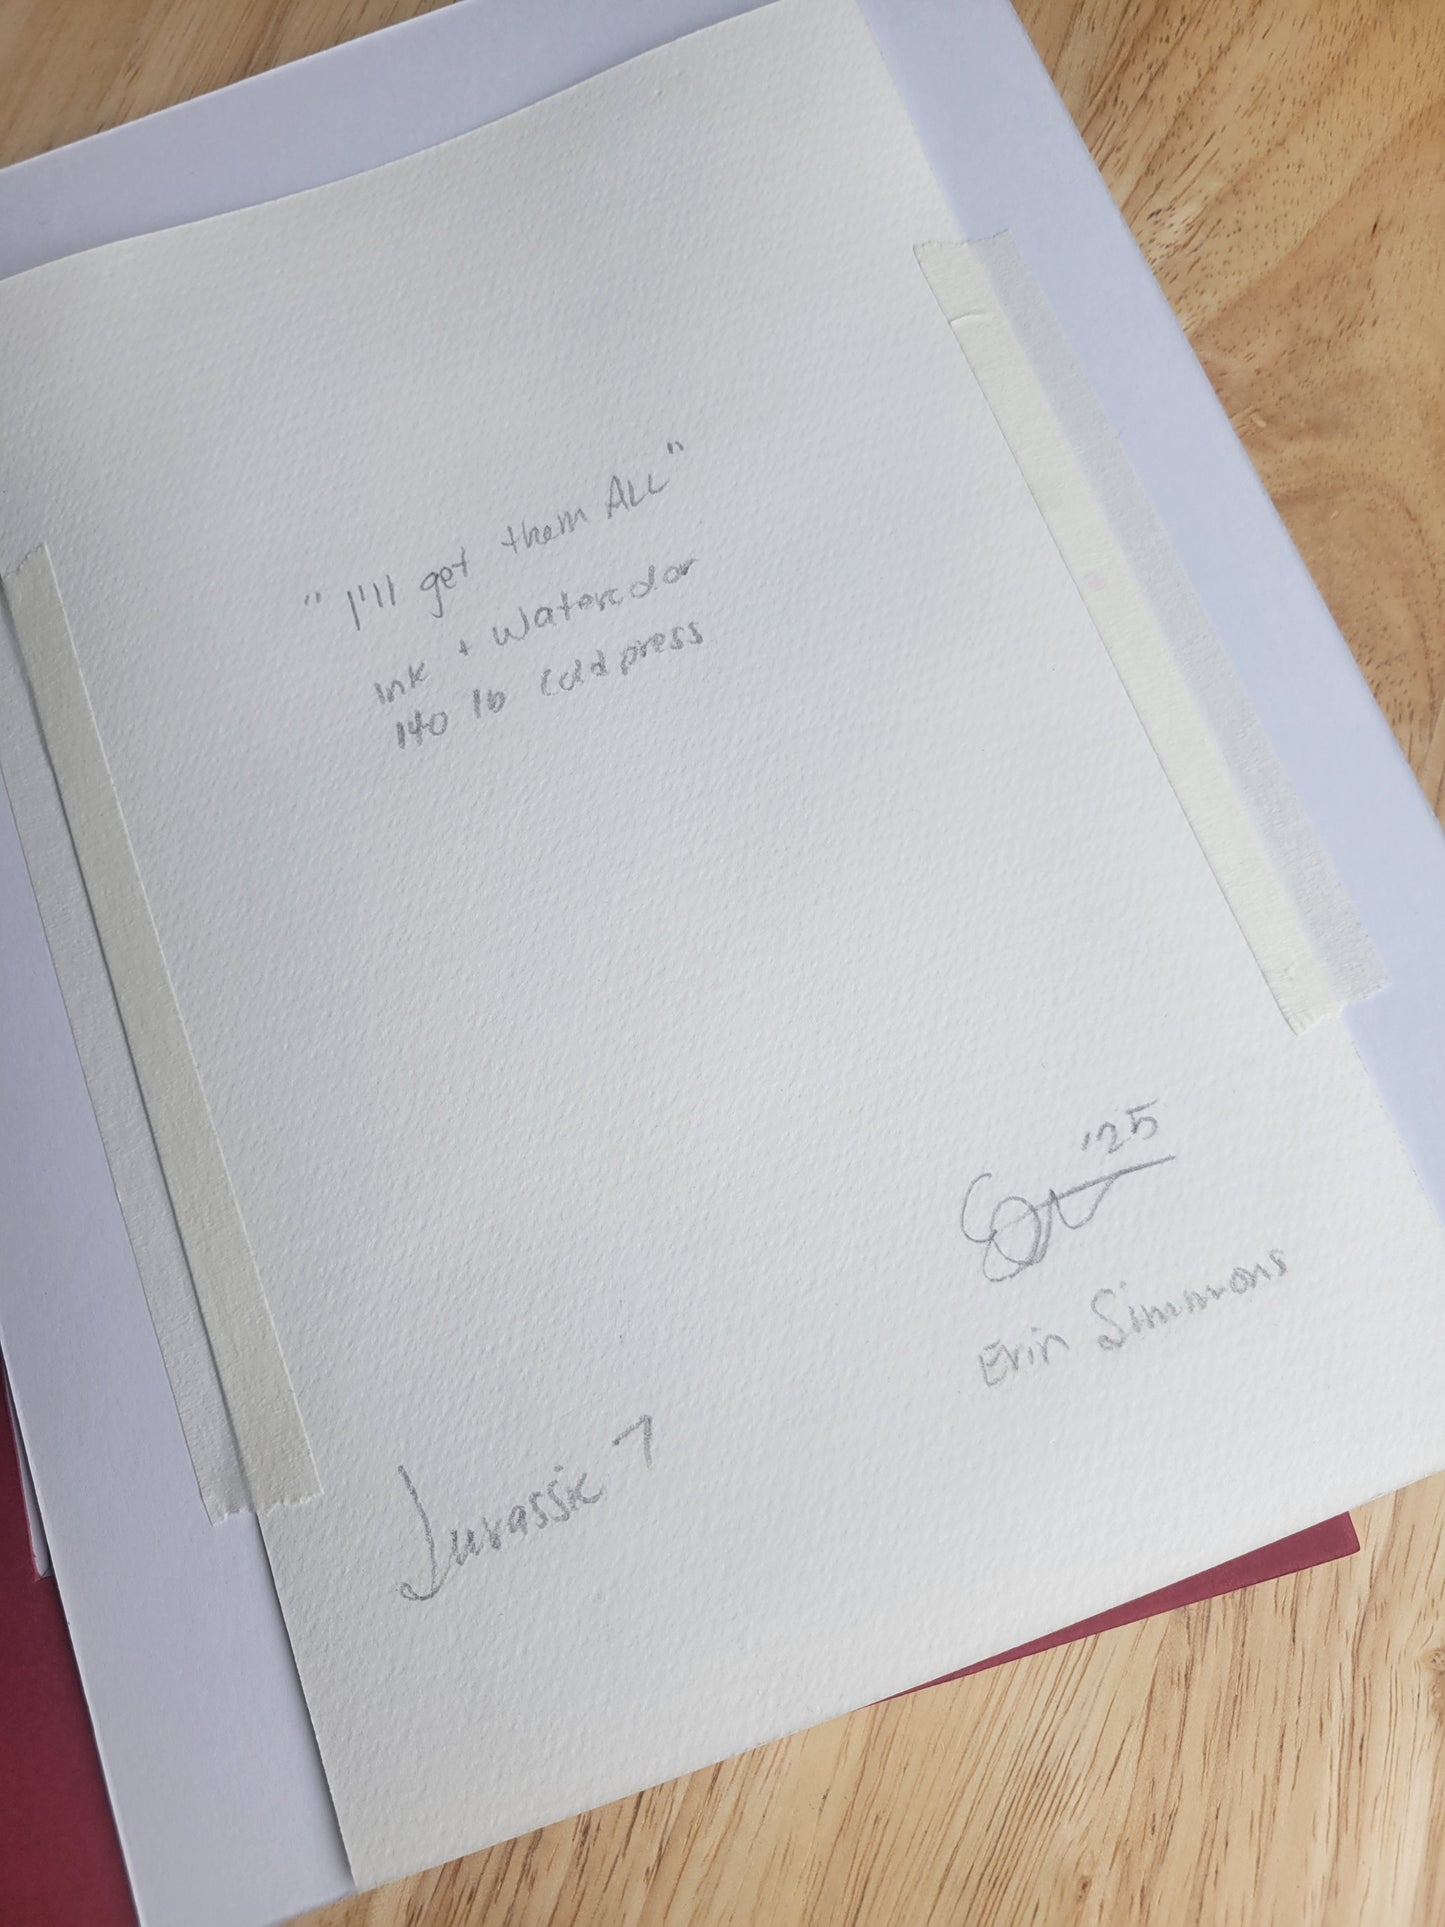 "I'll get them ALL"
Ink + Watercolor
140 lb Cold press
'25
Erin Simmons
Jurassic 7